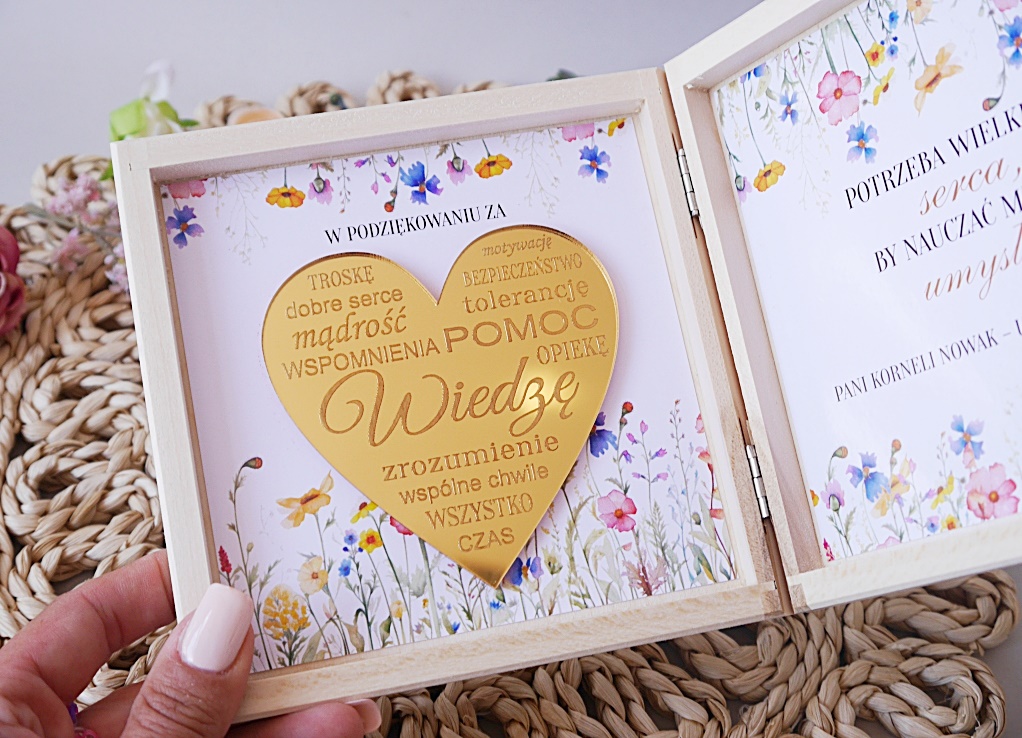 W PODZIĘKOWANIU ZA
motywację
TROSKĘ
BEZPIECZEŃSTWO
dobre serce
tolerancję
mądrość
POMOC
WSPOMNIENIA
OPIEKĘ
Wiedzę
zrozumienie
wspólne chwile
WSZYSTKO
CZAS
POTRZEBA
serca,
BY NAUCZAĆ
PANI KORNELI NOWAK –